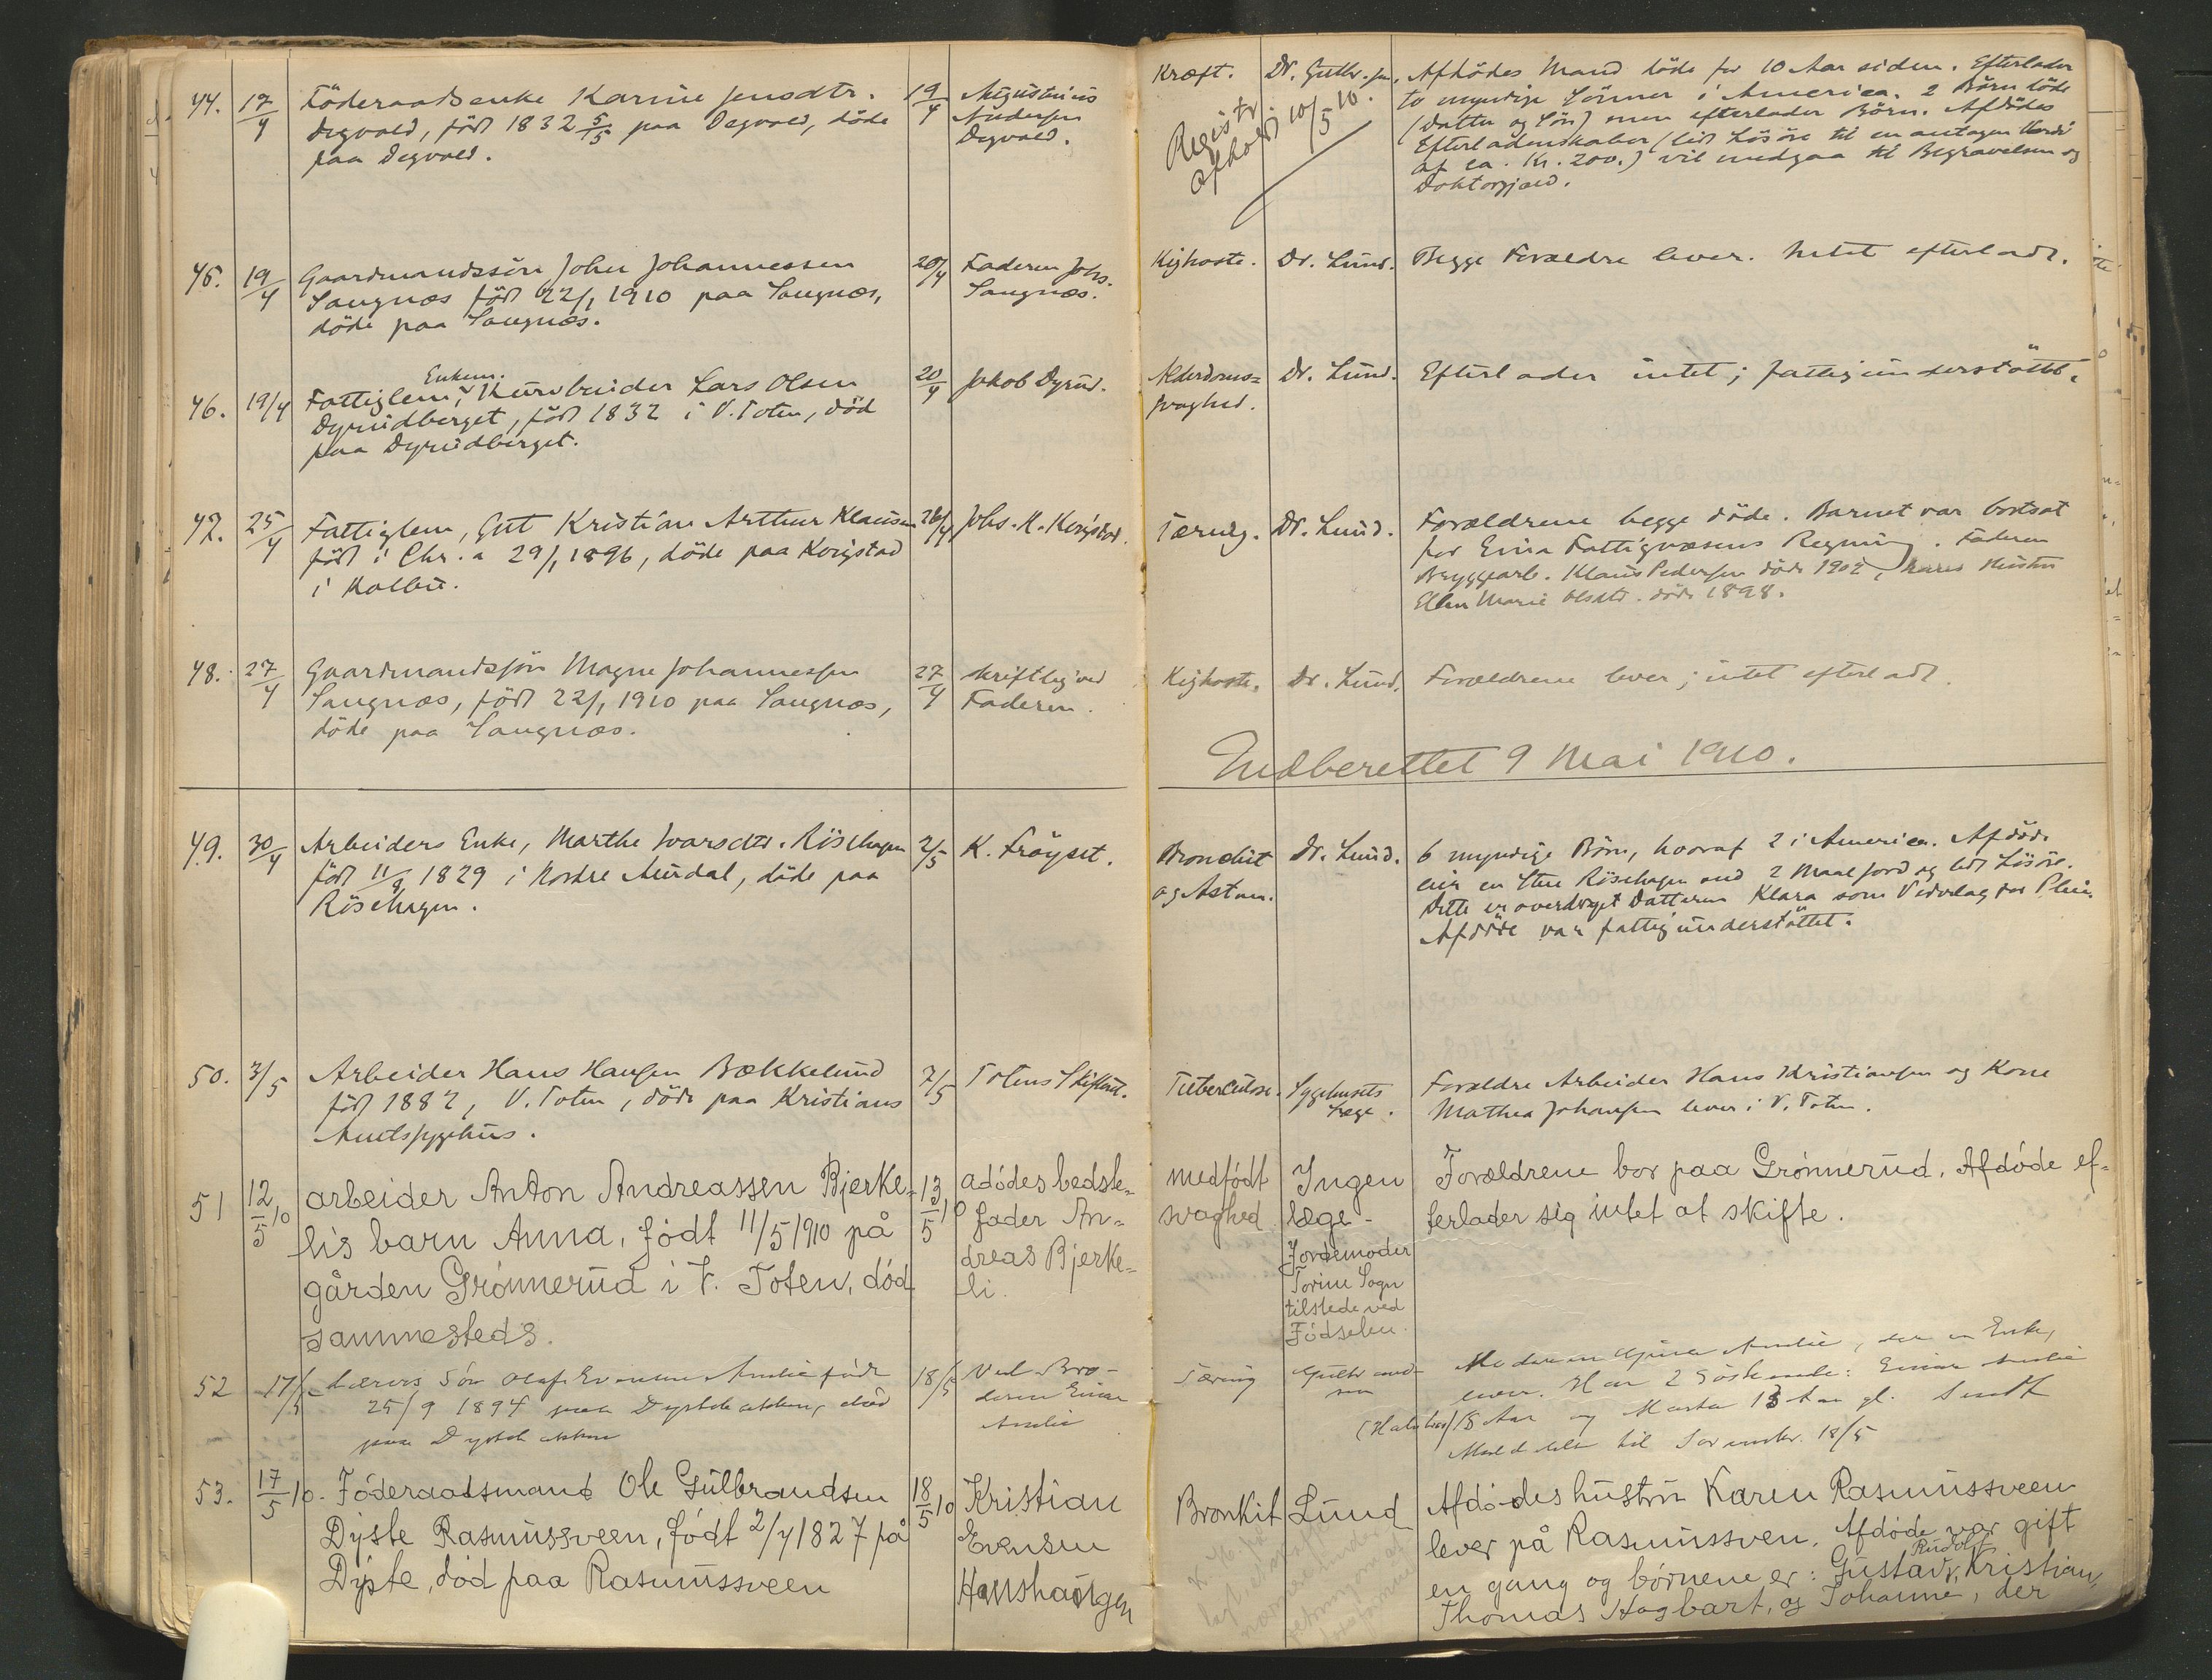 44. 17/4 Föderaadsenke Karine Jensdtr. 19/4 Augustinius
Degvold, född 1832 5/5 paa Degvold, döde Andersen
paa Degvold. Degvold.
Kræft. Dr. Afdödes Mand döde for 10 Aar siden. Efterlader
to myndige Sönner i America. 2 Börn döde
(Datter og Sön) men efterlader Börn. Afdödes
Efterladenskaber (lidt Lösöre til en antagen Værdi
af ca. Kr. 200.) vil medgaa til Begravelsen og
Doktorgjæld.
Registr.
afholdt 10/5 10.
45. 19/4 Gaardmandssön Johan Johannessen 20/4 Faderen Johs.
Saugnæs född 22/1 1910 paa Saugnæs, Saugnæs.
döde paa Saugnæs.
Kighoste. Dr. Lund. Begge Forældre lever. Intet efterladt.
Enkem.
46. 19/4 Fattiglem, Kurvbinder Lars Olsen 20/4 Jakob Dyrud.
Dyrudberget, född 1832 i V. Toten, död
paa Dyrudberget.
Alderdoms= Dr. Lund. Efterlader intet; fattigunderstöttet.
svaghed.
47. 25/4 Fattiglem, Gut Kristian Arthur Klausen 26/4 Johs. K. Kongstad.
född i Chr.a 29/1 1896, döde paa Kongstad
i Kolbu.
Tæring. Dr. Lund. Forældrene begge döde. Barnet var bortsat
for Eina Fattigvæsens Regning. Faderen
Bryggearb. Klaus Pedersen döde 1902, hans Hustru
Ellen Marie Olsdtr. döde 1898.
48. 27/4 Gaardmandssön Magne Johannessen 27/4 skriftlig ved
Saugnæs, född 22/1 1910 paa Saugnæs, Faderen.
döde paa Saugnæs.
Kighoste. Dr. Lund. Forældrene lever; intet efterladt.
Indberettet 9 Mai 1910.
49. 30/4 Arbeiders Enke, Marthe Ivarsdtr. Röisehagen 2/5 K. Fröyset.
född 11/8 1829 i Nordre Aurdal, döde paa
Röisehagen.
Bronchit Dr. Lund. 6 myndige Börn, hvoraf 2 i America. Afdöde
og Astma. eier en Stue Röisehagen med 2 Maal Jord og lidt Lösöre.
Dette er overdraget Datteren Klara som Vederlag for Pleie.
Afdöde var fattigunderstöttet.
50. 3/5 Arbeider Hans Hansen Bækkelund 7/5 Totens Skifteret.
född 1882, V. Toten, döde paa Kristians
Amtssygehus.
Tuberculose. Sygehusets Forældre Arbeider Hans Kristiansen og Kone
Læge. Mathea Johansen lever i V. Toten.
51 12/5 10 arbeider Anton Andreassen Bjerke- 13/5 10 adódes bedste-
lis barn Anna, fódt 11/5 1910 på fader An-
gården Grónnerud i V. Toten, död dreas Bjerke-
sammesteds. li.
medfódt Ingen Forældrene bor paa Grónnerud. Afdóde ef-
svaghed læge- terlader sig intet at skifte.
Jordemoder
Torine Sogn
tilstede ved
Fódselen.
52 17/5 Lærers Sön Olaf Evensen Amlie född 18/5 Ved Bro-
25/9 1894 paa Dystebakken, död deren Einar
paa Dystebakken Amlie
Tæring Moderen Gina Amlie, der er Enke,
lever. Har 2 Söskende: Einar Amlie
(Halvbror) 18 Aar og Marta 13 Aar gl. Sendt
Meddelelse til Sorenskr. 18/5
53. 17/5 10. Fóderaadsmand Ole Gulbrandsen 18/5 10 Kristian
Dyste Rasmussveen, fódt 2/4 1827 på Evensen
Dyste, död paa Rasmussveen Hanshaugen
Bronkit Lund Afdódes hustru Karen Rasmussveen
lever på Rasmussveen. Afdóde var gift
Rudolf
en gang og bórnene er: Gustav, Kristian,
Thomas Hagbart, og Johanne, der